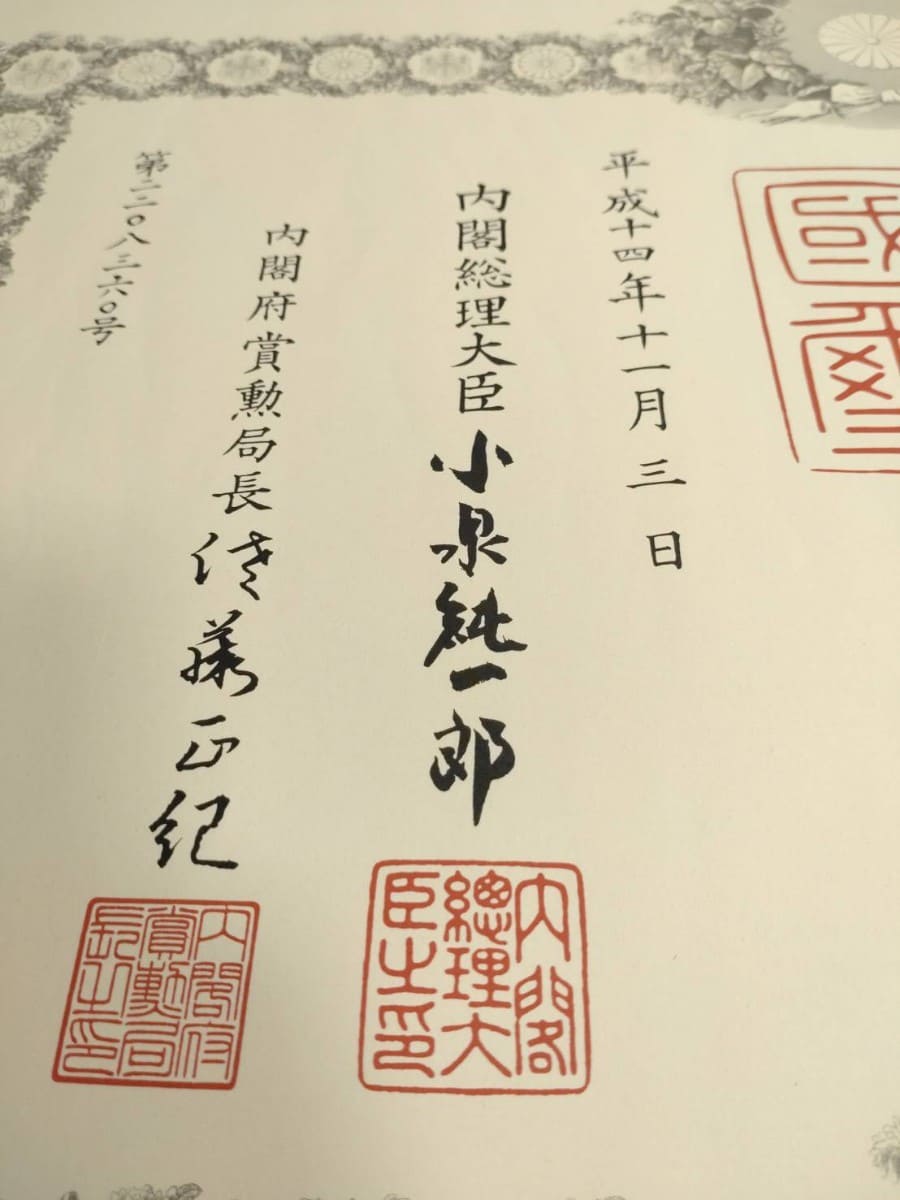 國璽
平成十四年十一月三日
内閣総理大臣 小泉純一郎
内閣總理大臣之印
内閣府賞勲局長 佐藤正紀
内閣府賞勲局長之印
第二二〇八三六〇号